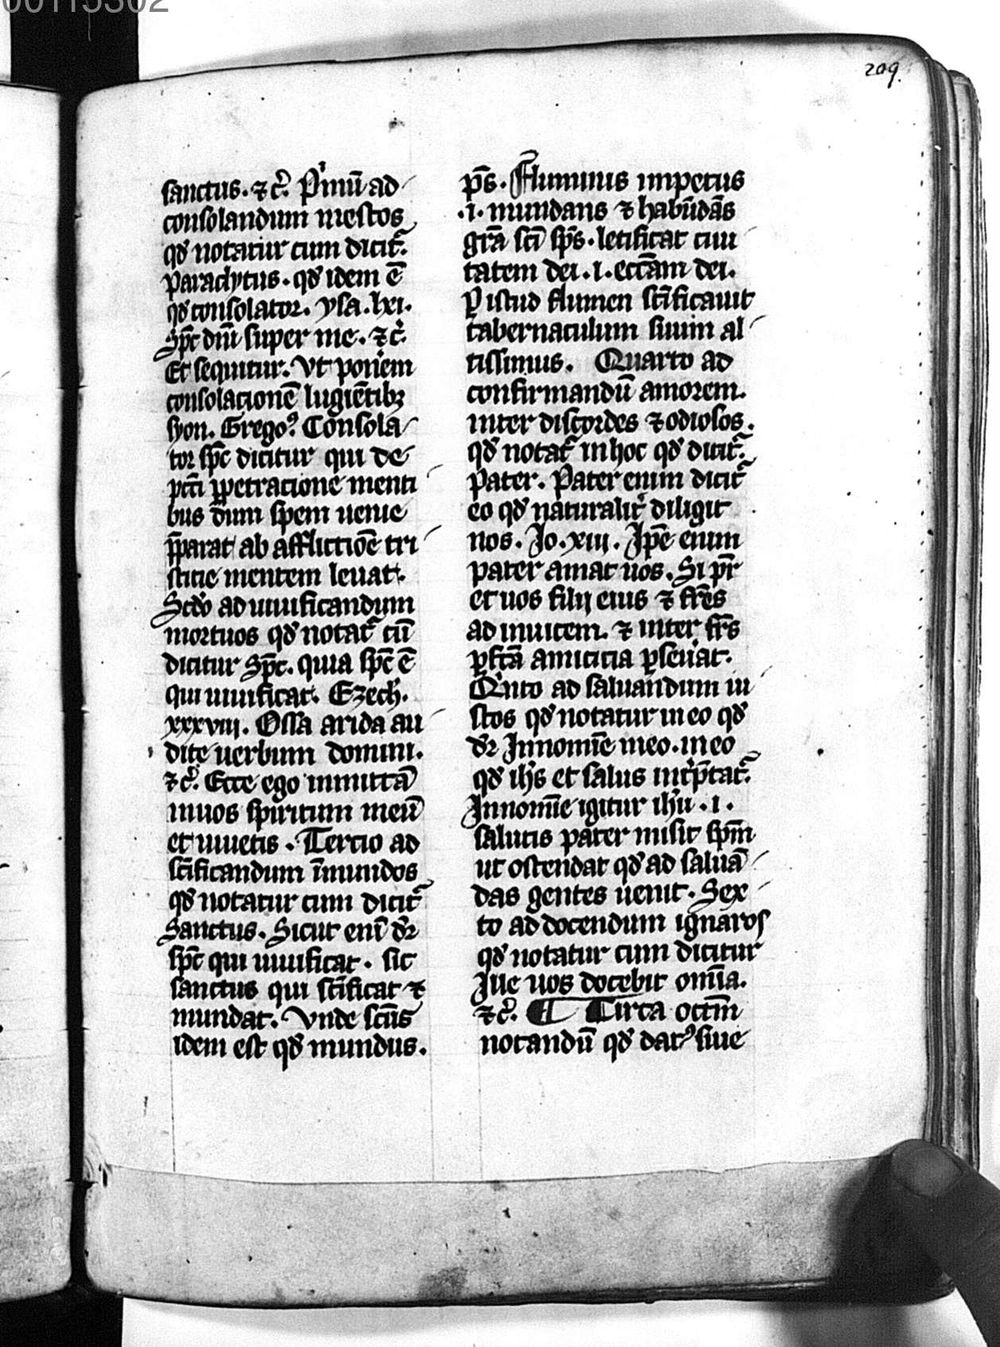 00115302
209.
sanctus. ⁊ c̃. P'mū ad
consolandum mestos
qđ notatur cum dicit᷑.
paraclytus. qđ idem ē
qđ consolator. ysa. lxi.
Sp̄c dn̄i super me. ⁊ c̃.
Et sequitur. Vt ponem
consolacionē lugiētibꝫ
syon. Grego᷒. Consola
tor sp̄c dicitur qui de
pctī ꝑpetracione menti
bus dum spem uenie
p̄parat ab afflictiōe tri
sticie mentem leuat.
Scđo ad uiuificandum
mortuos qđ notat᷑ cū
dicitur Sp̄c. quia sp̄c ē
qui uiuificat. Ezech.
xxxviij. Ossa arida au
dite uerbum domini.
⁊ c̃. Ecce ego inmittā
inuos spiritum meū
et uiuetis. Tercio ad
sc̄ificandum īmundos
qđ notatur cum dicit᷑
Sanctus. Sicut enī dr̄
sp̄c qui uiuificat. sic
sanctus qui sc̄ificat ⁊
mundat. Vnde sc̄us
idem est qđ mundus.
p̄s. Fluminis impetus
.i. mundans ⁊ habūdās
gr̄a sc̄i sp̄s. letificat ciui
tatem dei. i. eccām dei.
ꝑ istud flumen sc̄ificauit
tabernaculum suum al
tissimus. Quarto ad
confirmandū amorem.
inter discordes ⁊ odiosos.
qđ notat᷑ in hoc qđ dicit᷑.
Pater. Pater enim dicit᷑
eo qđ naturalit᷑ diligit
nos. Jo. xiii. Jp̄e enim
pater amat uos. Si pr̄
et uos filij eius ⁊ fr̄es
ad inuicem. ⁊ inter fr̄s
ꝑfc̄a amicicia ꝑseuat.
Q'nto ad saluandum iu
stos qđ notatur in eo qđ
dr̄ Innomīe meo. in eo
qđ ih̄s et salus int᷑p̄tat᷑.
Innomīe igitur ih̄u. i.
salutis pater misit sp̄m
ut ostendat qđ ad saluā
das gentes uenit. Sex
to ad docendum ignaros
qđ notatur cum dicitur
Jlle uos docebit om̄ia.
⁊ c̃. ¶ Circa octm̄
notandū qđ dat᷑ siue